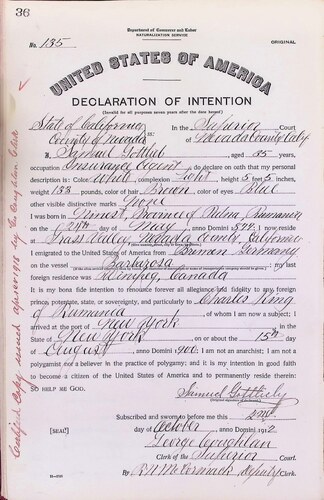 36
Department of Commerce and Labor
NATURALIZATION SERVICE
No. 135
ORIGINAL
UNITED STATES OF AMERICA
DECLARATION OF INTENTION
(Invalid for all purposes seven years after the date hereof)
State of California
County of Nevada ss: In the Superior Court of Nevada County Calif
I, Samuel Gottlieb, aged 35 years,
occupation Insurance Agent, do declare on oath that my personal
description is: Color White, complexion Light, height 5 feet 5 inches,
weight 133 pounds, color of hair Brown, color of eyes Blue
other visible distinctive marks None
I was born in Rumania
on the day of May, anno Domini; I now reside
at Grass Valley Nevada County, California
I emigrated to the United States of America from Bremen Germany
on the vessel Barbarosa; my last
foreign residence was Winnipeg, Canada
It is my bona fide intention to renounce forever all allegiance and fidelity to any foreign
prince, potentate, state, or sovereignty, and particularly to Charles King
of Rumania, of whom I am now a subject; I
arrived at the port of New York, in the
State of New York on or about the 15th day
of August, anno Domini 1900; I am not an anarchist; I am not a
polygamist nor a believer in the practice of polygamy; and it is my intention in good faith
to become a citizen of the United States of America and to permanently reside therein:
SO HELP ME GOD.
Samuel Gottlieb
Subscribed and sworn to before me this 2nd
[SEAL] day of October, anno Domini 1912
George Coughlan
Clerk of the Superior Court.
By R.N. McCormack, Deputy Clerk.
Certified Copy issued by Geo Coughlan Clerk